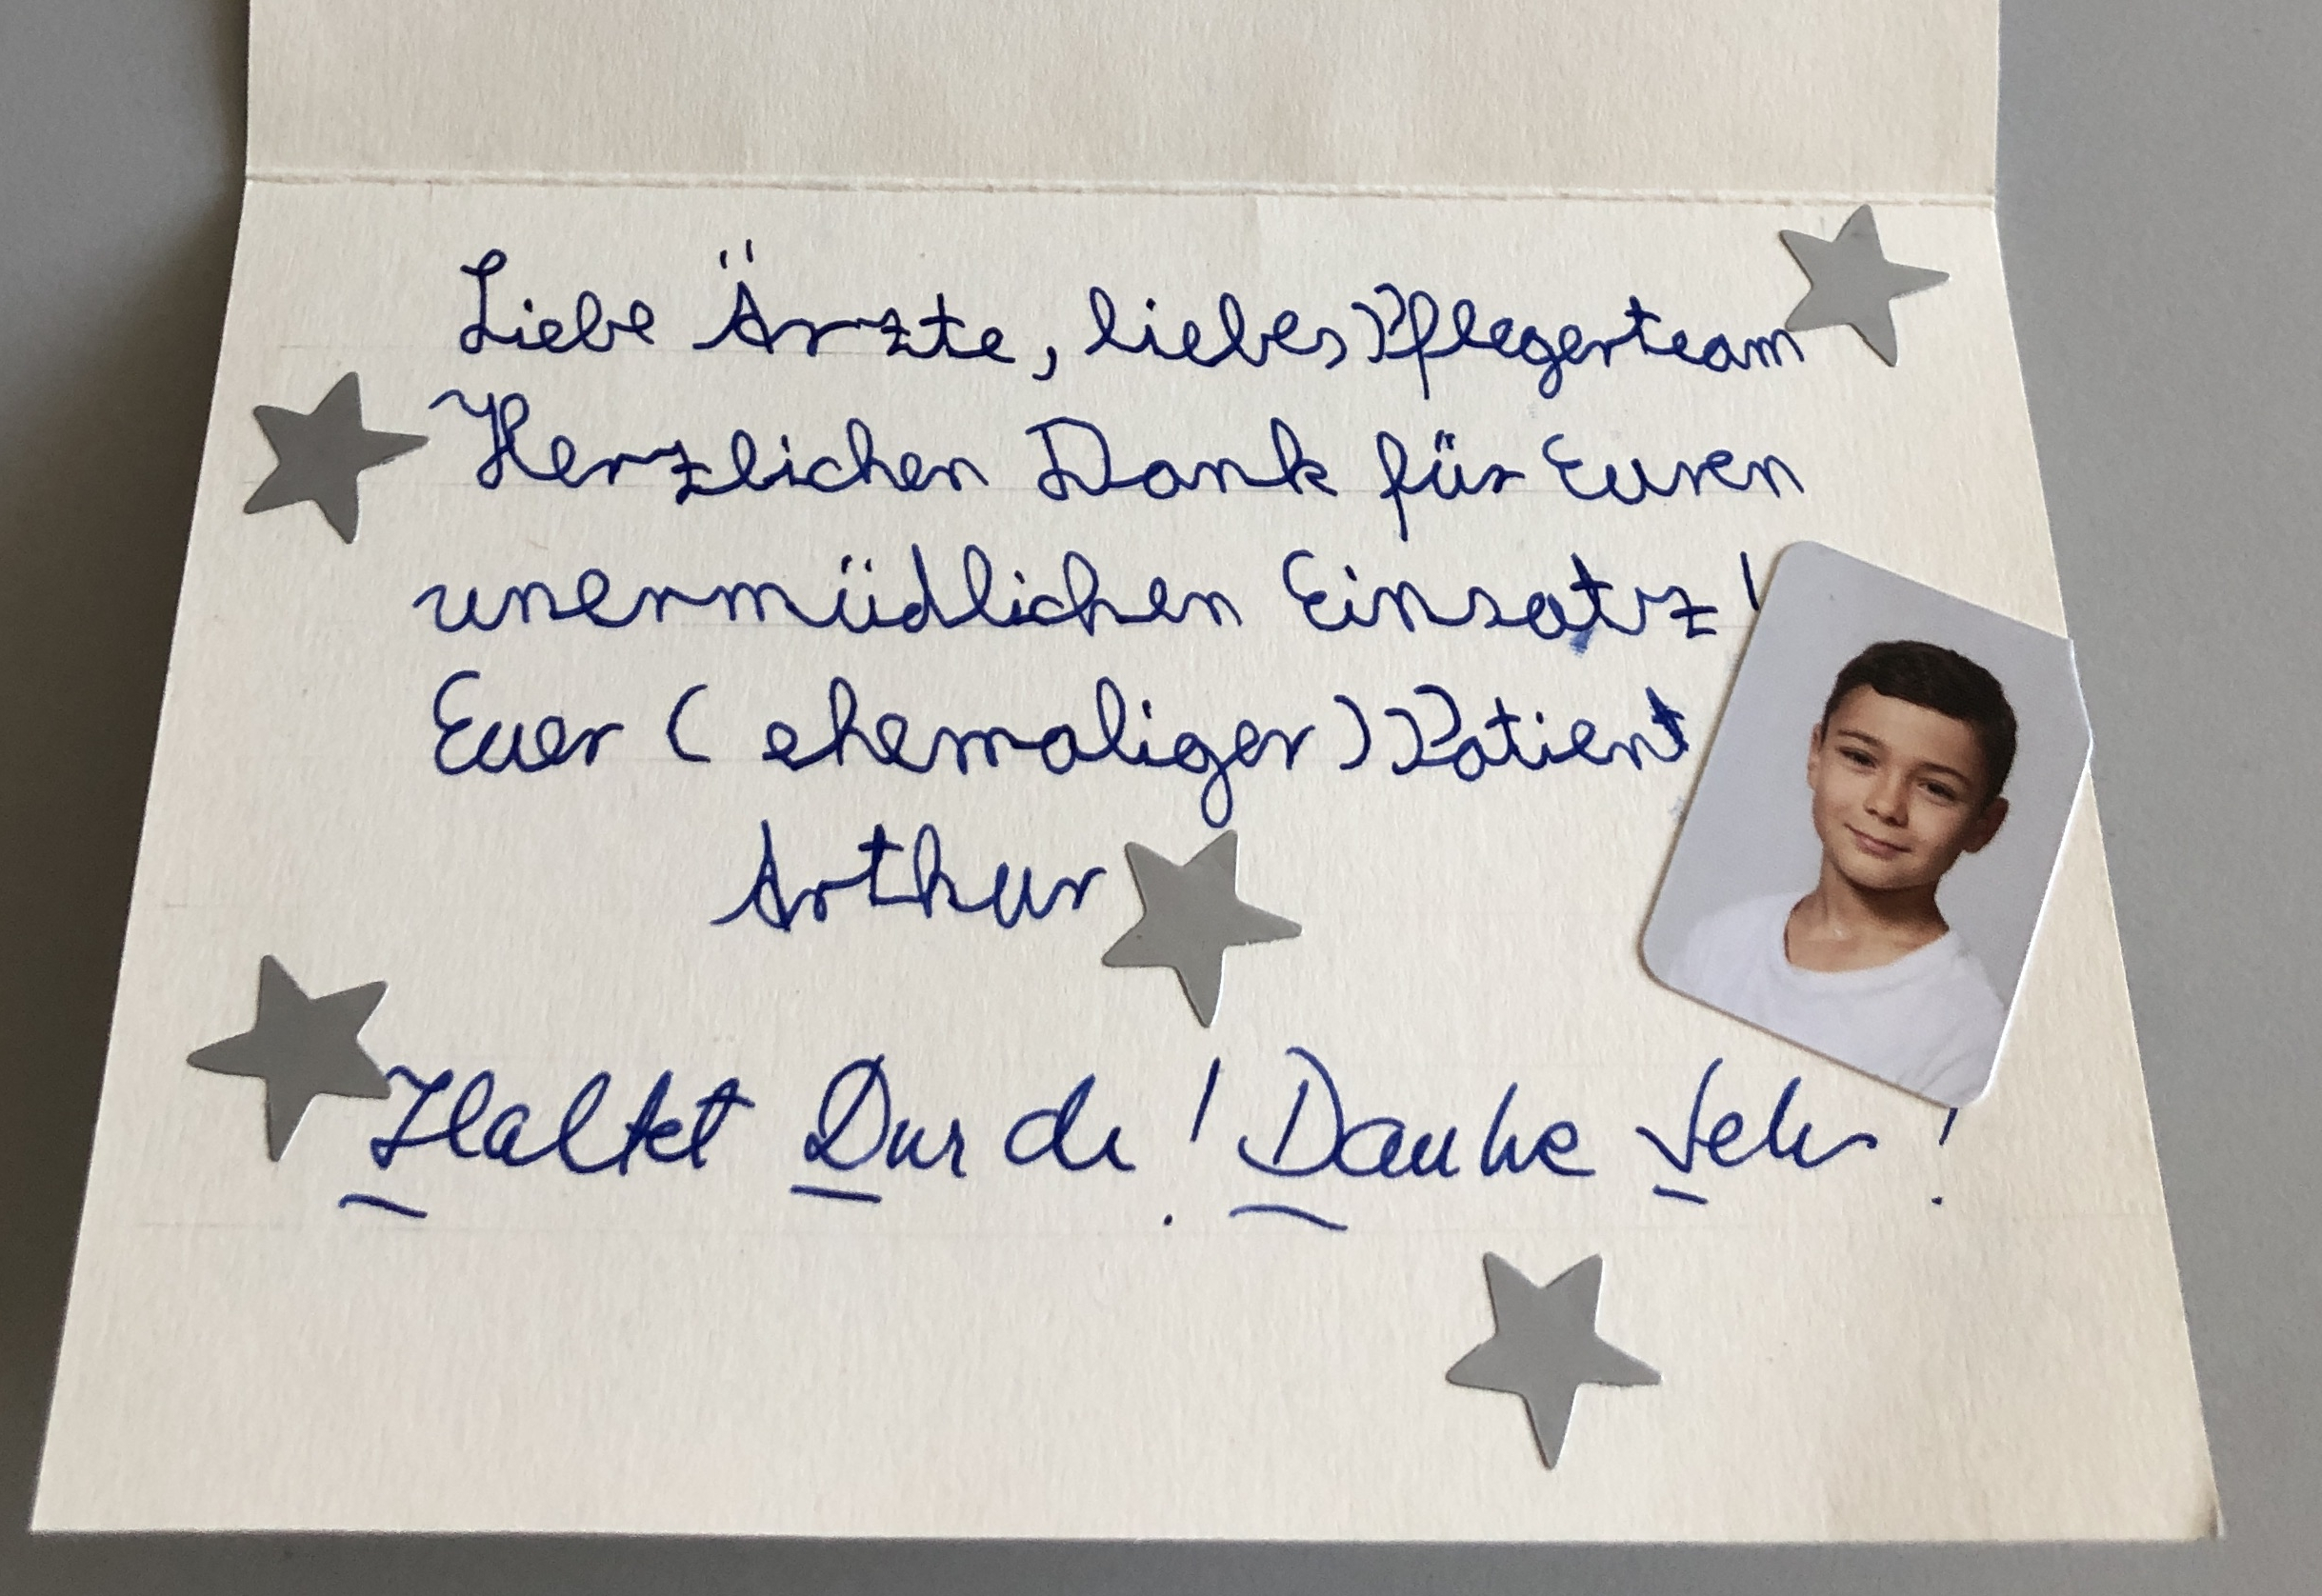 Liebe Ärzte, liebes Pflegerteam
Herzlichen Dank für Euren
unermüdlichen Einsatz!
Euer (ehemaliger) Patient
Arthur
Haltet Durch! Danke Sehr!